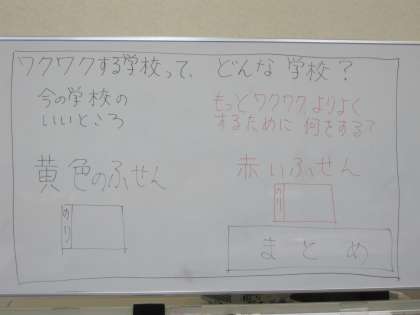 ワクワクする学校って、どんな学校?
今の学校の
いいところ
もっとワクワクよりよく
するために何をする?
黄色のふせん
赤いふせん
のり
のり
まとめ